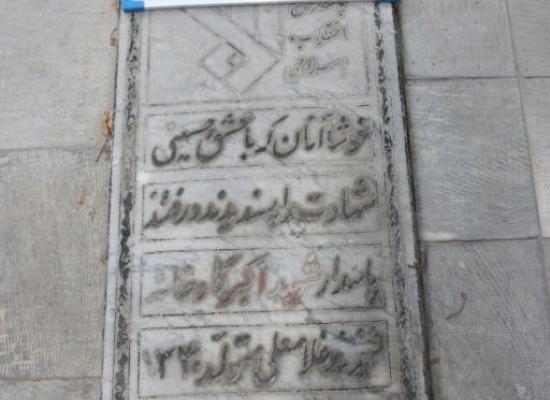 پاسداران
انقلاب
اسلامی
خوشا آنان که با عشق حسینی
شهادت را پسندیدند و رفتند
پاسدار شهید اکبر کارخانه
فرزند غلامعلی متولد ۱۳۴۰